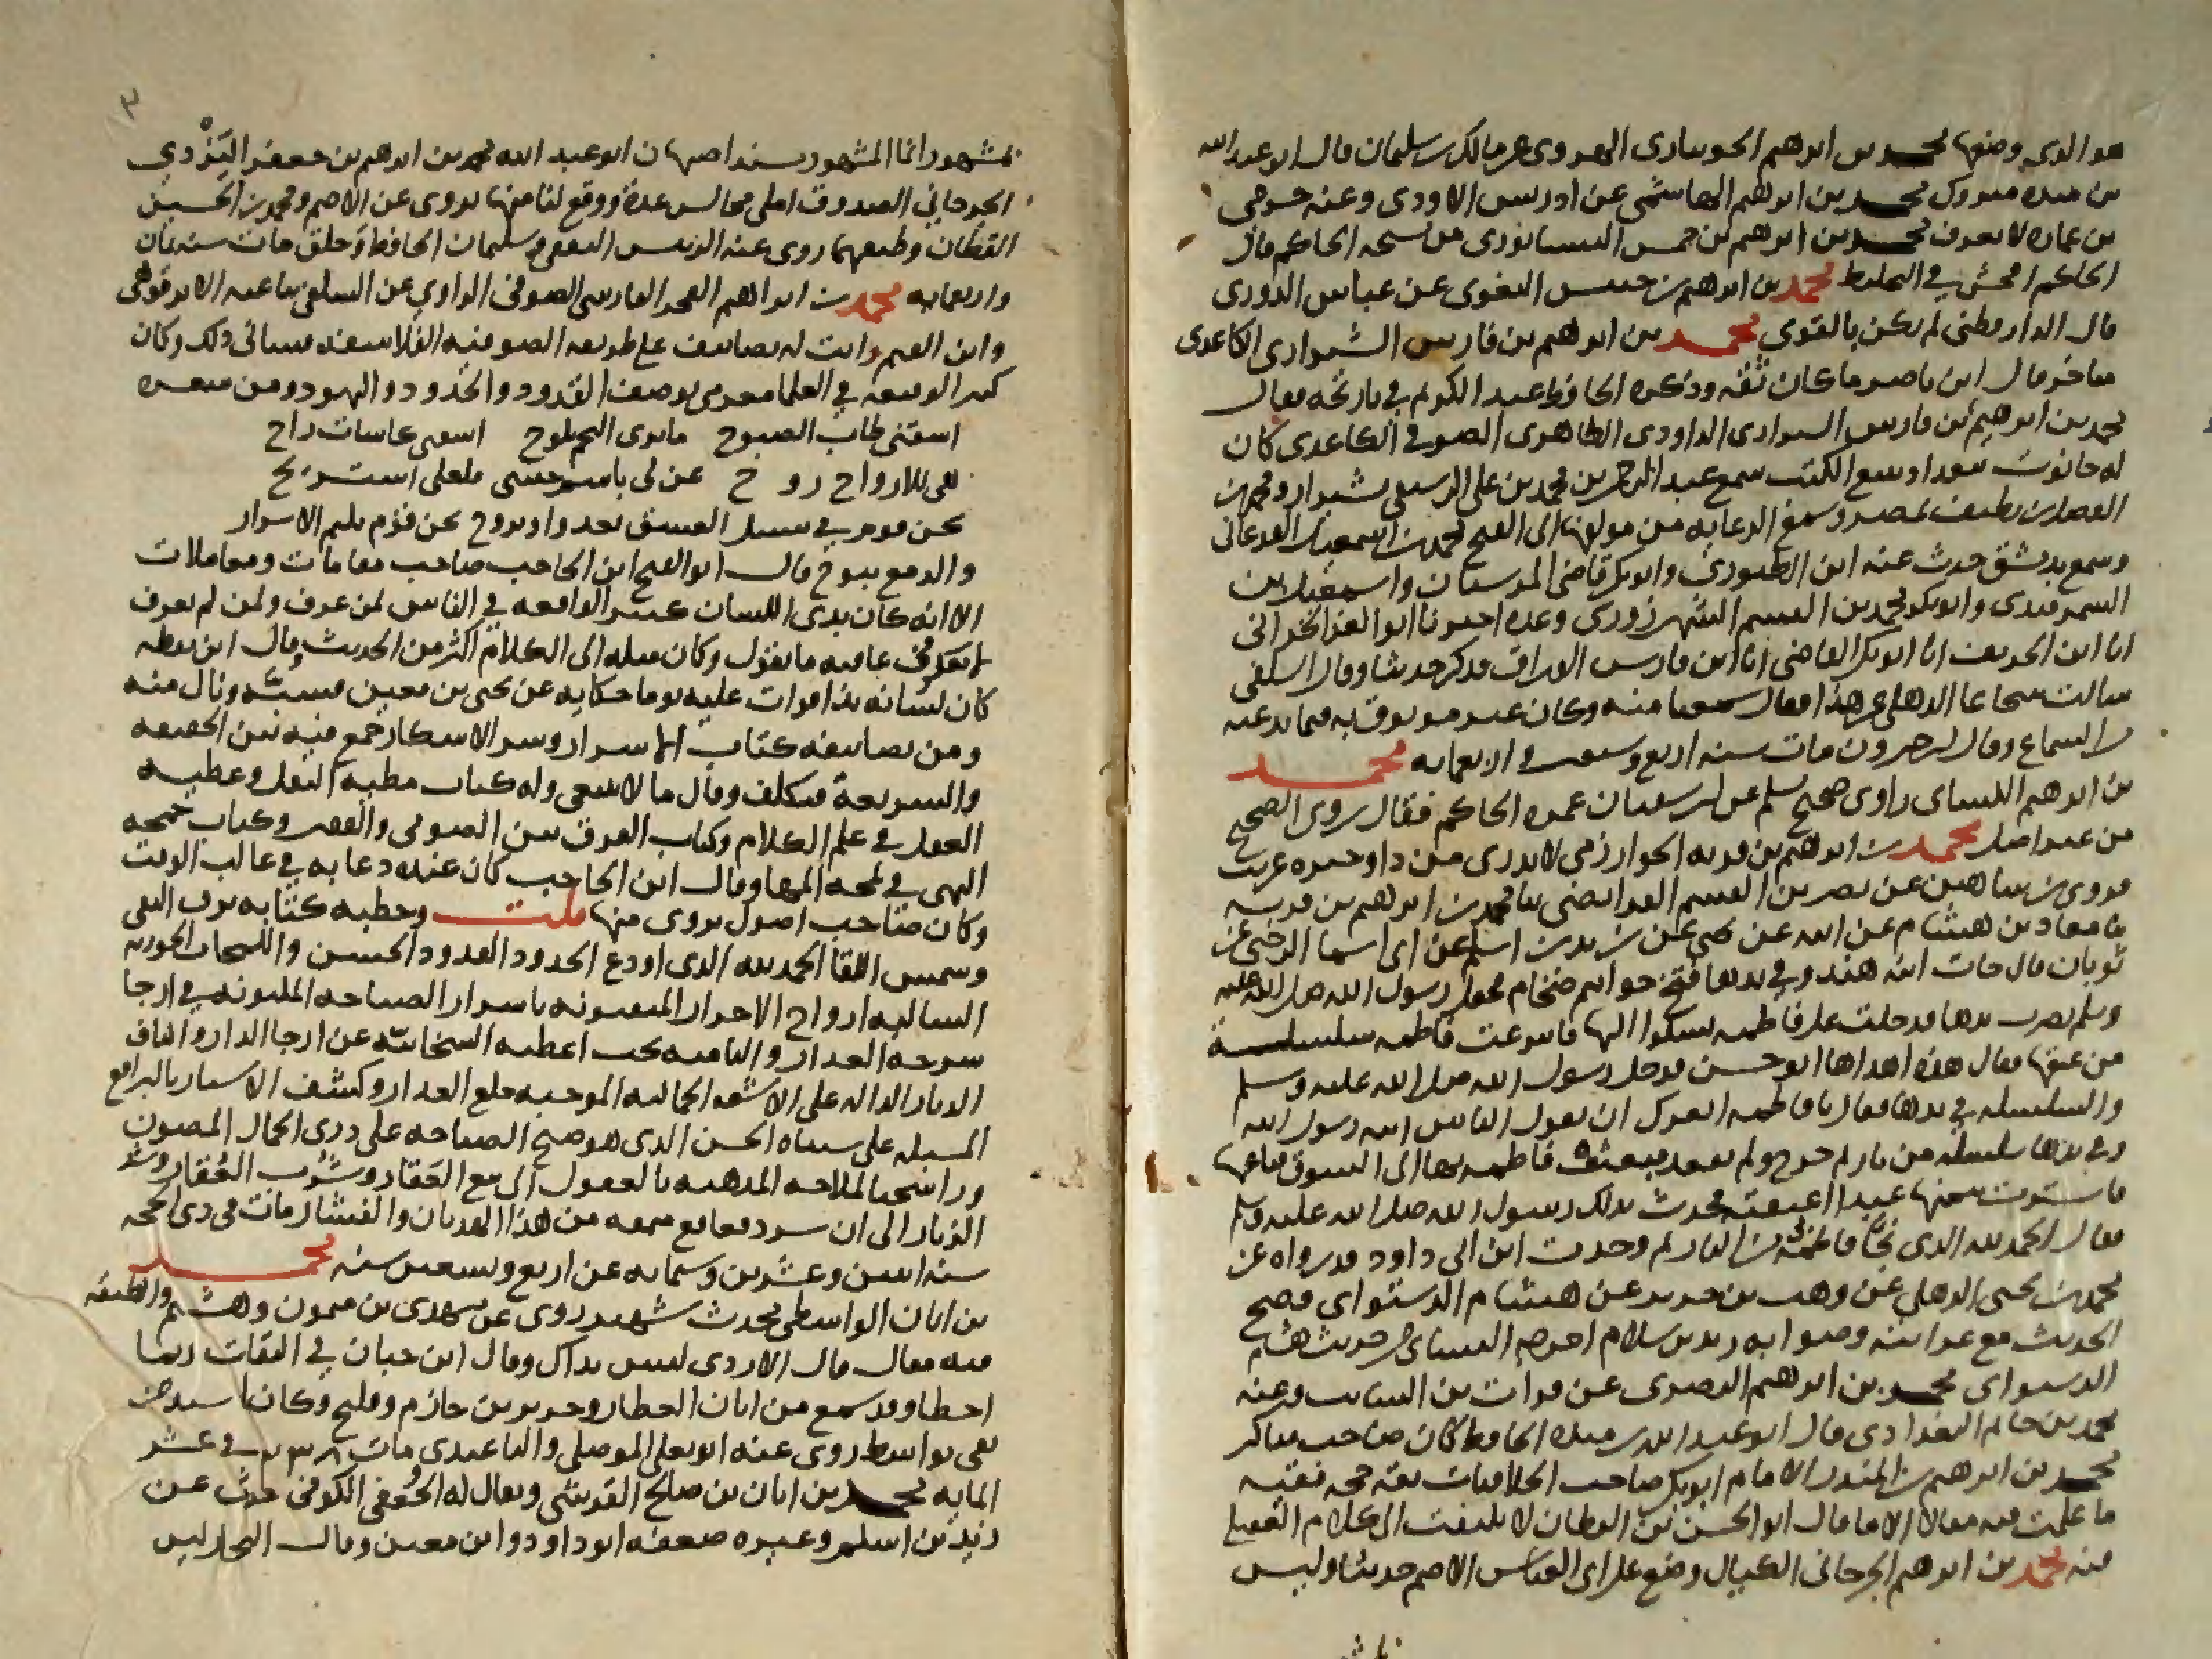 هو الذي وضعها محمد بن ابرهيم الحوسارى الهروى عن مالك بن سليمان قال ابو عبد الله
بن منده متروك محمد بن ابرهيم الهاشمي عن ادريس الاودى وعنه حرمي
بن عماره لا يعرف محمد بن ابرهيم بن حمس النيسابورى من شيوخ الحاكم قال
الحاكم افحش في التخليط محمد بن ابرهيم بن حبيس البغوى عن عباس الدورى
قال الدارقطني لم يكن بالقوى محمد بن ابرهيم بن فارس الشيرازى الكاغدى
متاخر قال ابن ناصر ما كان ثقه وذكره الحافظ عبد الكريم في تاريخه فقال
محمد بن ابرهيم بن فارس الشيرازى الداودى الظاهرى الصوفي الكاغدى كان
له حانوت ببغداد يبيع الكتب سمع عبد الرحمن بن محمد بن على الرسعى بشيراز ومحمد بن
الفضل بن نظيف بمصر وسمع الرعايه من مولفها ابى الفتح محمد بن اسمعيل الفرغانى
وسمع بدمشق حدث عنه ابن الطيورى وابو بكر قاضي المرستان واسمعيل بن
السمرقندى وابو بكر محمد بن القسم الشهرزورى وعده اخبرنا ابو الفدا الحرانى
انا ابن الحرستا انا ابو بكر القاضي انا ابن فارس الوراق فذكر حديثا وقال السلفي
سالت شجاعا الذهلي عن هذا فقال سمعنا منه وكان غير موثوق به فيما يدعيه
من السماع وقال ابن خيرون مات سنه اربع وسبعين واربعمايه محمد
بن ابرهيم الكسائى راوى صحيح مسلم عن ابن سفيان غمزه الحاكم فقال روى الصحيح
من غير اصل محمد بن ابرهيم بن قريه الخوارزمي لا يدرى من ذا وخبره غريب
فروى بن شاهين عن نصر بن القسم الفرايضي ثنا محمد بن ابرهيم بن قريه
ثنا معاذ بن هشام عن ابيه عن يحيى عن زيد بن اسلم عن ابى اسما الرحبي عن
ثوبان قال جات ابنه هند وفي يدها فتخ خواتم ضخام فجعل رسول الله صلى الله عليه
وسلم يضرب يدها فدخلت على فاطمه تشكوا اليها فانتزعت فاطمه سلسلسة
من عنقها فقال هذه اهداها ابو حسن فدخل رسول الله صلى الله عليه وسلم
والسلسله في يدها فقال يا فاطمه ايغرك ان يقول الناس ابنه رسول الله
وفي يدها سلسله من نار ثم خرج ولم يقعد فبعثت فاطمه بها الى السوق فباعتها
فاشترت بثمنها عبدا اعتقته فحدث بذلك رسول الله صلى الله عليه وسلم
فقال الحمد لله الذى نجا فاطمة من النار ثم وجدت ابن ابى داود قد رواه عن
محمد بن يحيى الذهلي عن وهب بن جرير عن هشام الدستواى فصح
الحديث مع غرابته وصوابه زيد بن سلام اخرجه النسائى من حديث هشام
الدستواى محمد بن ابرهيم البصرى عن فرات بن السائب وعنه
محمد بن حاتم البغدادى قال ابو عبد الله بن منده الحافظ كان صاحب مناكير
محمد بن ابرهيم بن المنذر الامام ابو بكر صاحب الخلافيات ثقه حجه فقيه
ما علمت فيه مقالا الا ما قال ابو الحسن بن القطان لا يلتفت الى كلام العقيلي
فيه محمد بن ابرهيم الجرجانى الكيال وضع على ابى العباس الاصم حديثا وليس
٣
بمشهور انما المشهور بسند اصبهان ابو عبد الله محمد بن ابرهيم بن جعفر اليَزْدي
الجرجاني الصدوق املى مجالس عدة ووقع لنا منها يروى عن الاصم ومحمد بن الحسين
القطان وطبقتهما روى عنه الرئيس الثقفي وسليمان الحافظ وخلق مات سنه ثمان
واربعمايه محمد بن ابراهيم الفخر الفارسي الصوفي الراوي عن السلفي ثنا عنه الابرقوهي
وابن القيم رايت له تصانيف على طريقه الصوفيه الفلاسفه فسائى ذلك وكان
كثير الوقيعه في العلما مغرى بوصف القدود والخدود والنهود ومن شعره
اسقنى طاب الصبوح ما ترى النجم يلوح اسقنى كاسات راح
هي للارواح روح غن لي باسم حبيبى فلعلى استريح
نحن قوم في سبيل العشق نغدوا ونروح نحن قوم نكتم الاسرار
والدمع يبوح قال ابو الفتح ابن الحاجب صاحب مقامات ومعاملات
الا انه كان بذى اللسان كثير الوقيعه في الناس لمن عرف ولمن لم يعرف
لا يفكر في عاقبه ما يقول وكان ميله الى الكلام اكثر من الحديث وقال ابن نقطه
كان لسانه بذا قرات عليه يوما حكايه عن يحيى بن معين فسبه ونال منه
ومن تصانيفه كتاب الاسرار وسر الاسكار جمع فيه بين الحقيقه
والشريعة فتكلف وقال ما لا ينبغي وله كتاب مطيه النقل وعطيه
العقل في علم الكلام وكتاب الفرق بين الصوفي والفقير وكتاب جمحه
النهى في لمحه المها وقال ابن الحاجب كان عنده دعابه في غالب الوقت
وكان صاحب اصول يروى منها قلت وخطبه كتابه برق النقى
وشمس اللقا الحمد لله الذى اودع الخدود القدود الحسن واللمحات الحوريه
السالبه ارواح الاحرار المفتونه باسرار الصباحه المكنونه في ارجا
سرحه العذار والناميه تحت اغطيه السبحانيه عن ارجا الدار واكناف
الديار الداله على الاشعه الجماليه الموجبه خلع العذار وكشف الاستار بالبراقع
المسبله على سناه الحسن الذى هو صبح الصباحه على ذرى الجمال المصون
ورا سحب الملاحه المذهبه بالعقول الى بيع العَقار وشُرب العُقار وشد
الزنار الى ان سرد قعاقع سمعه من هذا الهذيان والفشار مات في ذى الحجه
سنه اثنين وعشرين وستمايه عن اربع وتسعين سنه محمد
بن ابان الواسطي محدث شهير روى عن مهدى بن ميمون وهشيم والطبقه
فيه مقال قال الازدى ليس بذاك وقال ابن حبان في الثقات ربما
اخطا وقد سمع من ابان العطار وجرير بن حازم وفليح وكان اسند من
بقى بواسط روى عنه ابو يعلى الموصلي والباغندى مات ٢٣٨ في عشر
المايه محمد بن ابان بن صالح القرشي ويقال له الجُعفي الكوفي حدث عن
زيد بن اسلم وغيره ضعفه ابو داود وابن معين وقال البخارى ليس